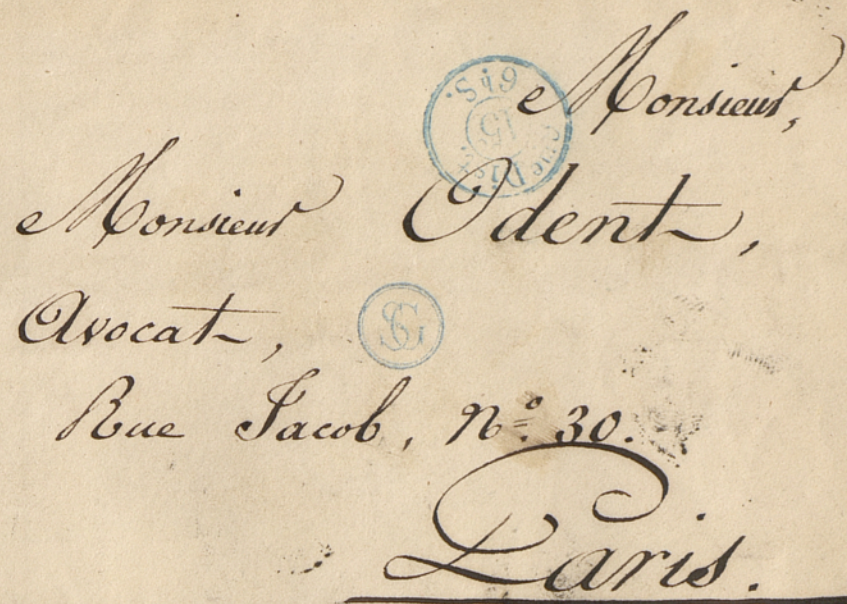 Monsieur,
Monsieur Odent,
Avocat,
SG
Rue Jacob, Nº 30.
Paris.
15